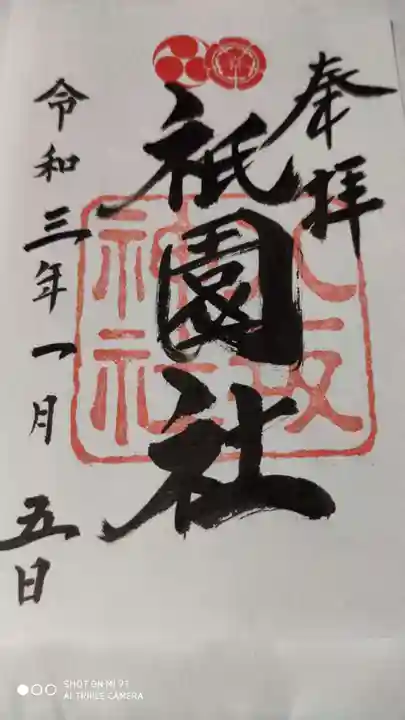 奉拝
祇園社
八坂
神社
令和三年一月五日
SHOT ON MI 9T
AI TRIPLE CAMERA